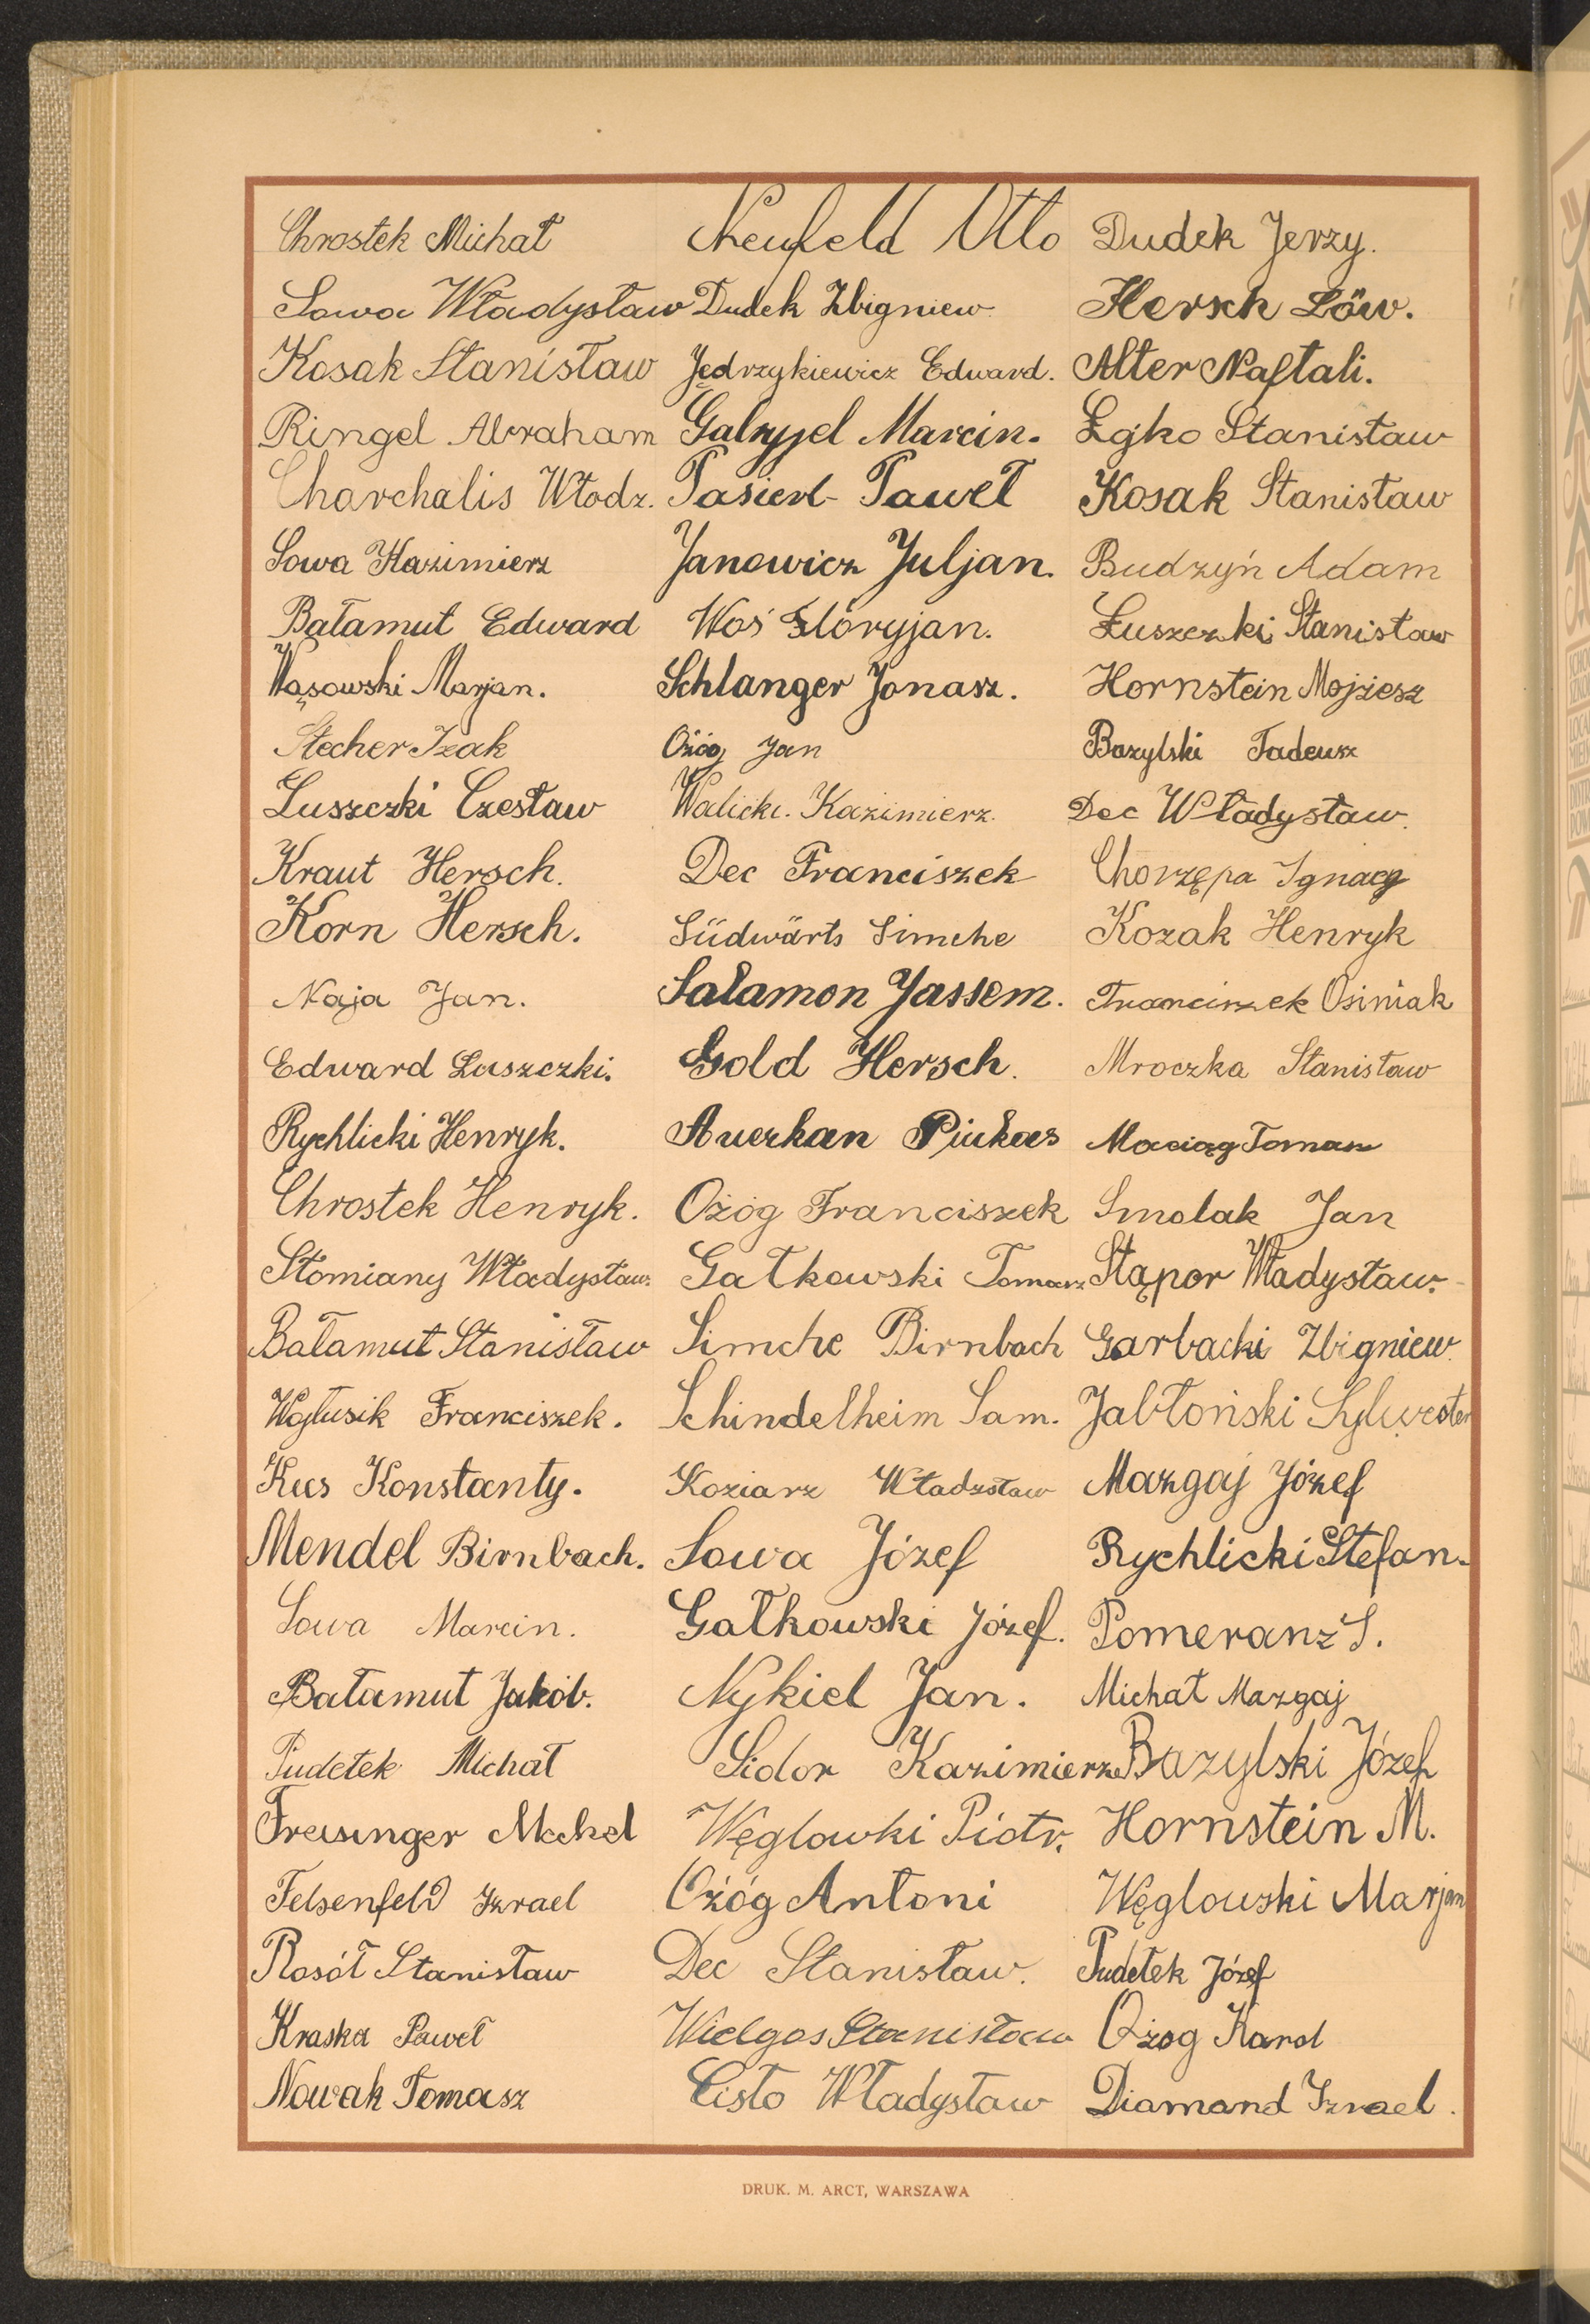 Chrostek Michał
Sowa Władysław
Kosak Stanisław
Ringel Abraham
Charchalis Włodz.
Sowa Kazimierz
Bałamut Edward
Wąsowski Marjan.
Stecher Izak
Łuszczki Czesław
Kraut Hersch.
Korn Hersch.
Naja Jan.
Edward Łuszczki.
Rychlicki Henryk.
Chrostek Henryk.
Słomiany Władysław.
Bałamut Stanisław
Franciszek.
Kus Konstanty.
Mendel Birnbach.
Sowa Marcin.
Bałamut Jakób.
Pudełek Michał
Freisinger Mechel
Felsenfeld Izrael
Rosół Stanisław
Kraska Paweł
Nowak Tomasz
Neufeld Otto
Dudek Zbigniew
Jędrzykiewicz Edward.
Gabryjel Marcin.
Pasierb Paweł
Janowicz Juljan.
Woś Floryjan.
Schlanger Jonasz.
Ożóg Jan
Walicki. Kazimierz.
Dec Franciszek
Südwärts Simche
Salamon Jassem.
Gold Hersch.
Auerhan Pinkas
Ożóg Franciszek
Gałkowski Tomasz
Simche Birnbach
Schindelheim Sam.
Koziarz Władzsław
Sowa Józef
Gałkowski Józef.
Nykiel Jan.
Sidor Kazimierz
Węglowki Piotr.
Ożóg Antoni
Dec Stanisław.
Wielgos Stanisław
Cisło Władysław
Dudek Jerzy.
Hersch Löw.
Alter Naftali.
Łojko Stanisław
Kosak Stanisław
Budzyń Adam
Łuszczki Stanisław
Hornstein Mojżesz
Bazylski Tadeusz
Dec Władysław.
Chorzępa Ignacy
Kozak Henryk
Franciszek Osiniak
Mroczka Stanisław
Maciąg Tomasz
Smolak Jan
Stąpor Władysław.
Garbacki Zbigniew.
Jabłoński Sylwester
Mazgaj Józef
Rychlicki Stefan.
Pomeranz S.
Michał Mazgaj
Bazylski Józef
Hornstein M.
Węglowski Marjan
Pudełek Józef
Ożog Karol
Diamand Izrael.
DRUK. M. ARCT, WARSZAWA